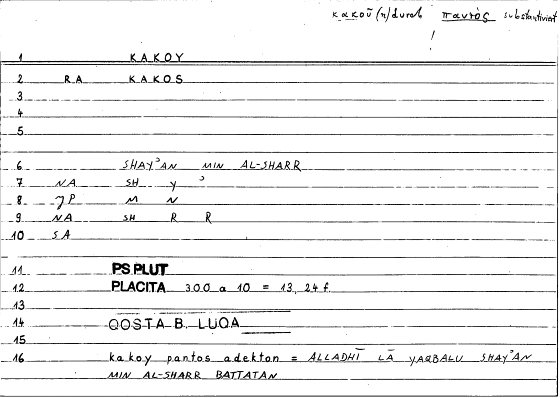 κακοῦ (n) durch παντὸς substantiviert
!
1 KAKOY
2 RA KAKOS
3
4
5
6 SHAYʾAN MIN AL-SHARR
7 NA SH Y ʾ
8 JP M N
9 NA SH R R
10 SA
11 PS PLUT
12 PLACITA 300 a 10 = 13, 24 f.
13
14 QOSTA B. LUQA
15
16 kakoy pantos adekton = ALLADHĪ LĀ YAQBALU SHAYʾAN
MIN AL-SHARR BATTATAN